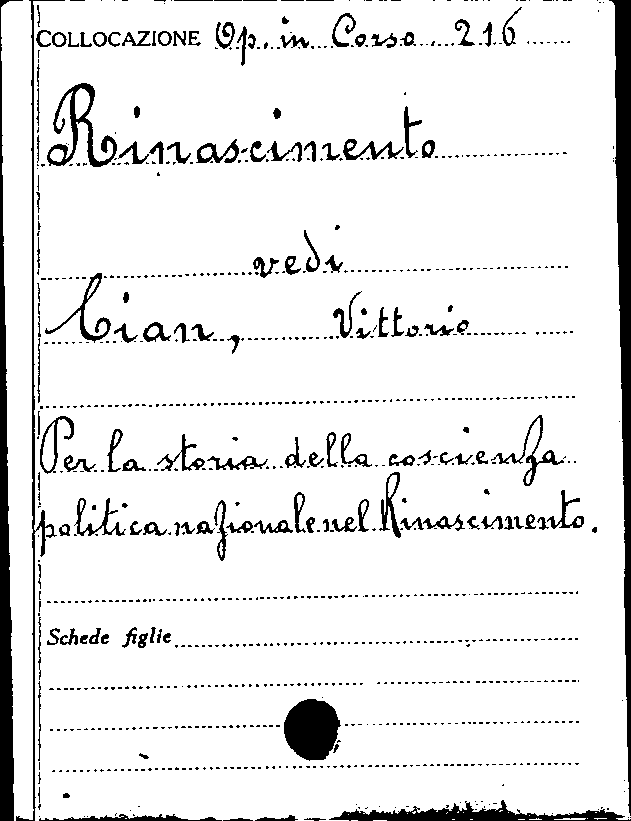 COLLOCAZIONE Op. in Corso. 216
Rinascimento
vedi
Cian, Vittorio
Per la storia della coscienza
politica nazionale nel Rinascimento.
Schede figlie